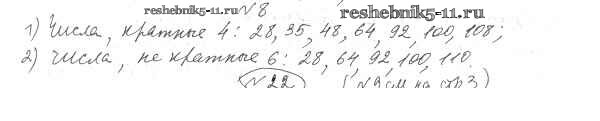 reshebnik5-11.ru №8 reshebnik5-11.ru
1) Числа, кратные 4: 28, 35, 48, 64, 92, 100, 108;
2) числа, не кратные 6: 28, 64, 92, 100, 110.
№22 (№9 см на стр 3)